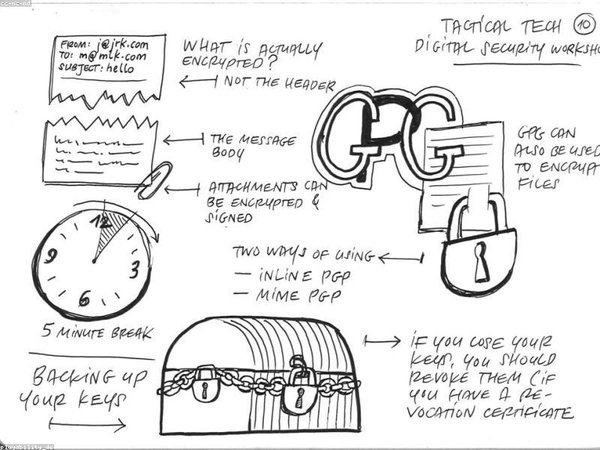 TACTICAL TECH 10
DIGITAL SECURITY WORKSHO
FROM: j@jrk.com
TO: m@mlk.com
SUBJECT: hello
WHAT IS ACTUALLY
ENCRYPTED?
NOT THE HEADER
THE MESSAGE
BODY
ATTACHMENTS CAN
BE ENCRYPTED &
SIGNED
GPG
GPG CAN
ALSO BE USED
TO ENCRYPT
FILES
12
3
6
9
5 MINUTE BREAK
TWO WAYS OF USING
— INLINE PGP
— MIME PGP
BACKING UP
YOUR KEYS
IF YOU LOSE YOUR
KEYS, YOU SHOULD
REVOKE THEM (IF
YOU HAVE A RE-
VOCATION CERTIFICATE